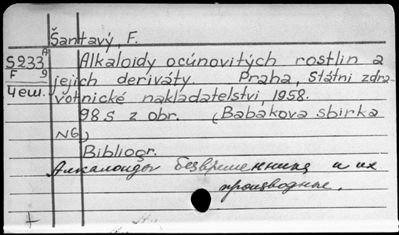 Šantavý, F.
S233 A Alkaloidy ocúnovitých rostlin a
F 9 jejich deriváty. Praha, Státni zdra-
4eш. votnické nakladatelstvi, 1958.
98 s z obr. (Babákova sbirka
N6)
Bibliogr.
Алкалоиды безвременника и их
производные.